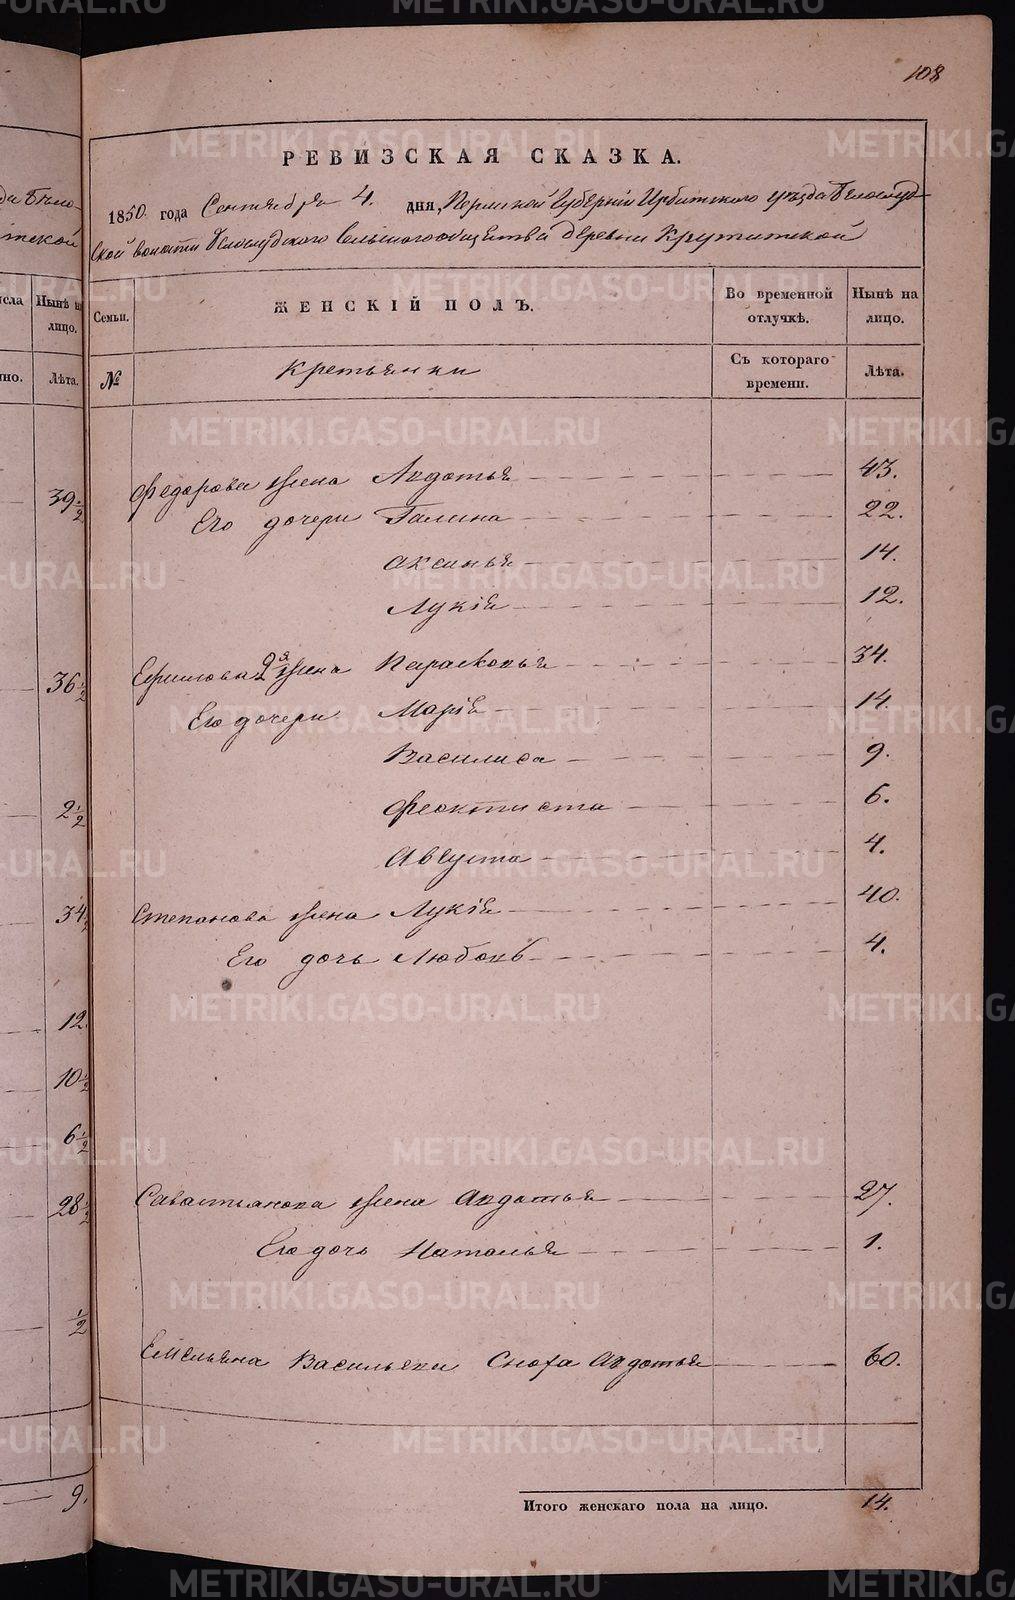 108
РЕВИЗСКАЯ СКАЗКА.
1850 года Сентября 4. дня, Пермской Губерніи Ирбитского уѣзда Белослуд-
ской волости Белослудского Сельского общества деревни Крутитской
Семьи. ЖЕНСКІЙ ПОЛЪ. Во временной отлучкѣ. Нынѣ на лицо.
№ Крестьянки Съ котораго времени. Лѣта.
Федорова жена Авдотья 43.
Его дочери Галина 22.
Аксинья 14.
Лукія 12.
Ефимова 2я жена Парасковья 34.
Его дочери Марія 14.
Василиса 9.
Феоктиста 6.
Августа 4.
Степанова жена Лукія 40.
Его дочь Любовь 4.
Савастьянова жена Авдотья 27.
Его дочь Наталья 1.
Емельяна Васильева Сноха Авдотья 60.
Итого женскаго пола на лицо. 14.
Нынѣ на лицо.
Лѣта.
39 1/2
36 1/2
2 1/2
34 1/2
12.
10 1/2
6 1/2
28 1/2
1/2
9.
METRIKI.GASO-URAL.RU